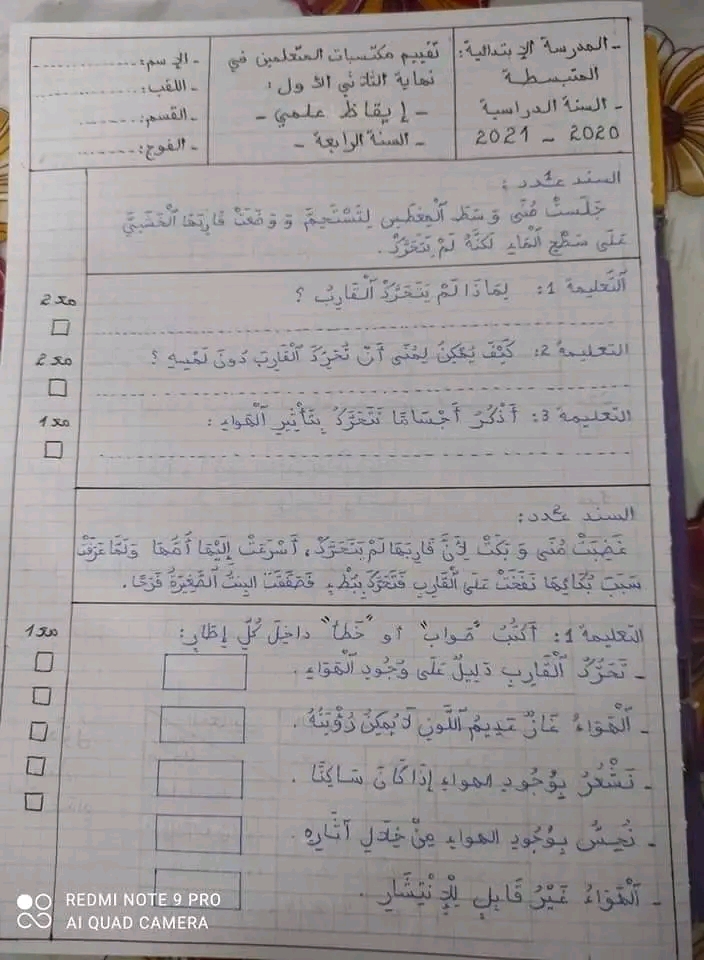 - المدرسة الإبتدائية:
المتبسطة
- السنة الدراسية
2020 - 2021
تقييم مكتسبات المتعلمين في
نهاية الثلاثي الأول:
- إيقاظ علمي -
- السنة الرابعة -
- الإسم: ..........
- اللقب: ..........
- القسم: ........
- الفوج: ........
السند عدد:
جَلَسَتْ مُنَى وَسَطَ الْمِغْطَسِ لِتَسْتَحِمَّ وَ وَضَعَتْ قَارِبَهَا الْخَشَبِيَّ
عَلَى سَطْحِ الْمَاءِ لَكِنَّهُ لَمْ يَتَحَرَّكْ.
التَّعليمة 1: لِمَاذَا لَمْ يَتَحَرَّكْ الْقَارِبُ ؟
مع2
التعليمة 2: كَيْفَ يُمْكِنُ لِمُنَى أَنْ تُحَرِّكَ الْقَارِبَ دُونَ لَمْسِهِ ؟
مع2
التعليمة 3: أَذْكُرُ أَجْسَامًا تَتَحَرَّكُ بِتَأْثِيرِ الْهَوَاءِ :
مع1
السند عدد:
غَضِبَتْ مُنَى وَ بَكَتْ لِأَنَّ قَارِبَهَا لَمْ يَتَحَرَّكْ، أَسْرَعَتْ إِلَيْهَا أُمُّهَا وَلَمَّا عَرَفَتْ
سَبَبَ بُكَائِهَا نَفَخَتْ عَلَى الْقَارِبِ فَتَحَرَّكَ بِبُطْءٍ فَصَفَّقَتْ البِنْتُ الصَّغِيرَةُ فَرَحًا.
التعليمة 1: أَكْتُبُ "صَواب" أو "خَطأ" داخِلَ كُلِّ إِطَارٍ:
مع1
- تَحَرُّكُ الْقَارِبِ دَلِيلٌ عَلَى وُجُودِ الْهَوَاءِ.
- الْهَوَاءُ غَازٌ عَدِيمُ اللَّوْنِ لَا يُمْكِنُ رُؤْيَتُهُ.
- نَشْعُرُ بِوُجُودِ الهواءِ إِذَا كَانَ سَاكِنًا.
- نُحِسُّ بِوُجُودِ الهواءِ مِنْ خِلَالِ آثَارِهِ.
- الْهَوَاءُ غَيْرُ قَابِلٍ لِلْإِنْتِشَارِ.
REDMI NOTE 9 PRO
AI QUAD CAMERA